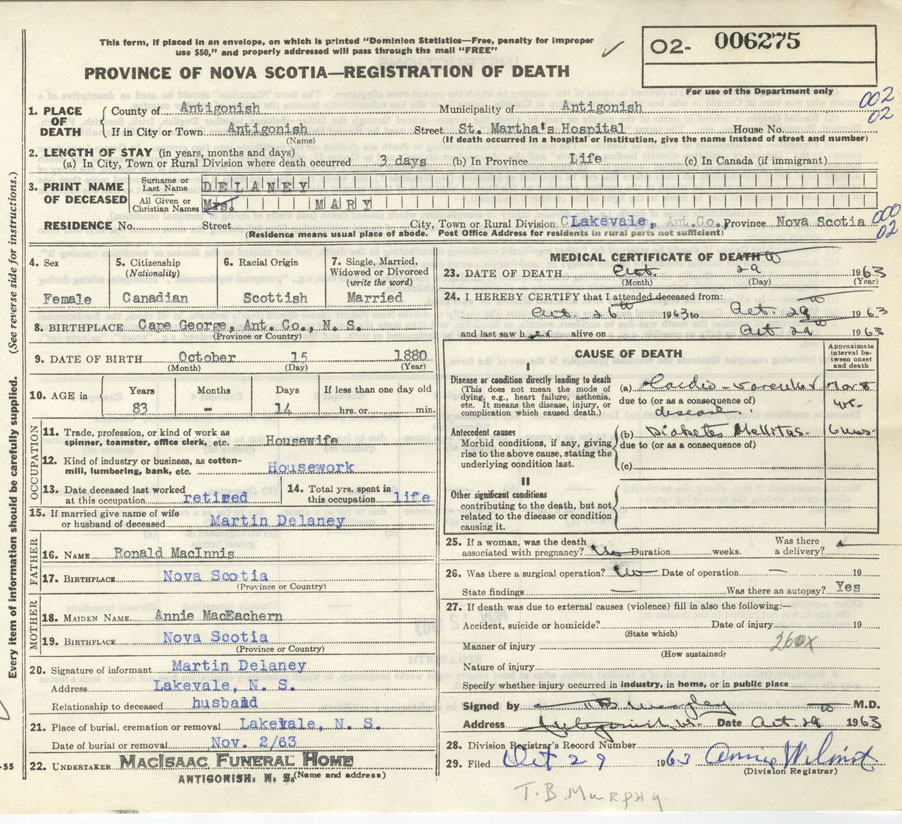 This form, if placed in an envelope, on which is printed “Dominion Statistics—Free, penalty for improper
use $50,” and properly addressed will pass through the mail “FREE”
✓
O2- 006275
PROVINCE OF NOVA SCOTIA—REGISTRATION OF DEATH
For use of the Department only
002
02
1. PLACE OF DEATH
County of Antigonish Municipality of Antigonish
If in City or Town Antigonish Street St. Martha's Hospital House No.
(Name) (If death occurred in a hospital or institution, give the name instead of street and number)
2. LENGTH OF STAY (in years, months and days)
(a) In City, Town or Rural Division where death occurred 3 days (b) In Province Life (c) In Canada (if immigrant)
3. PRINT NAME OF DECEASED
Surname or Last Name DELANEY
All Given or Christian Names Mrs. MARY
RESIDENCE No. Street City, Town or Rural Division Lakevale, Ant.Co, Province Nova Scotia
000
02
(Residence means usual place of abode. Post Office Address for residents in rural parts not sufficient)
4. Sex
Female
5. Citizenship (Nationality)
Canadian
6. Racial Origin
Scottish
7. Single, Married, Widowed or Divorced (write the word)
Married
8. BIRTHPLACE Cape George, Ant. Co., N. S.
(Province or Country)
9. DATE OF BIRTH October 15 1880
(Month) (Day) (Year)
10. AGE in Years Months Days If less than one day old
83 - 14 hrs. or min.
OCCUPATION
11. Trade, profession, or kind of work as spinner, teamster, office clerk, etc. Housewife
12. Kind of industry or business, as cotton-mill, lumbering, bank, etc. Housework
13. Date deceased last worked at this occupation retired
14. Total yrs. spent in this occupation life
15. If married give name of wife or husband of deceased Martin Delaney
FATHER
16. NAME Ronald MacInnis
17. BIRTHPLACE Nova Scotia
(Province or Country)
MOTHER
18. MAIDEN NAME Annie MacEachern
19. BIRTHPLACE Nova Scotia
(Province or Country)
20. Signature of informant Martin Delaney
Address Lakevale, N. S.
Relationship to deceased husband
21. Place of burial, cremation or removal Lakevale, N. S.
Date of burial or removal Nov. 2/63
22. UNDERTAKER MACISAAC FUNERAL HOME
ANTIGONISH, N. S. (Name and address)
MEDICAL CERTIFICATE OF DEATH
23. DATE OF DEATH Oct. 29th 1963
(Month) (Day) (Year)
24. I HEREBY CERTIFY that I attended deceased from:
Oct 26th 1963 to Oct. 29th 1963
and last saw her alive on Oct 29th 1963
CAUSE OF DEATH
Approximate interval between onset and death
I
Disease or condition directly leading to death
(This does not mean the mode of dying, e.g., heart failure, asthenia, etc. It means the disease, injury, or complication which caused death.)
(a) Cardio-vascular
due to (or as a consequence of)
disease.
Antecedent causes
Morbid conditions, if any, giving rise to the above cause, stating the underlying condition last.
(b) Diabetes Mellitus- 6 mos-
due to (or as a consequence of)
(c)
II
Other significant conditions
contributing to the death, but not related to the disease or condition causing it.
25. If a woman, was the death associated with pregnancy? No Duration weeks. Was there a delivery?
26. Was there a surgical operation? No Date of operation — 19
State findings — Was there an autopsy? Yes
27. If death was due to external causes (violence) fill in also the following:—
Accident, suicide or homicide? Date of injury 19
(State which)
Manner of injury 260X
(How sustained)
Nature of injury
Specify whether injury occurred in industry, in home, or in public place
Signed by T.B. Murphy M.D.
Address Antigonish, N. Date Oct. 29th 1963
28. Division Registrar's Record Number
29. Filed Oct 29 1963 Annie Wilmot
(Division Registrar)
T. B Murphy
Every item of information should be carefully supplied. (See reverse side for instructions.)
-55